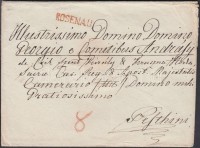 ROSENAU
Illustrissimo Domino Domino
Georgio e Comitibus Andrasy
de Csik Szent Király & Krasna Horka
Sacrae Caes. Reg. & Apost. Majestatis
Camerario Domino mihi
Gratiosissimo
8